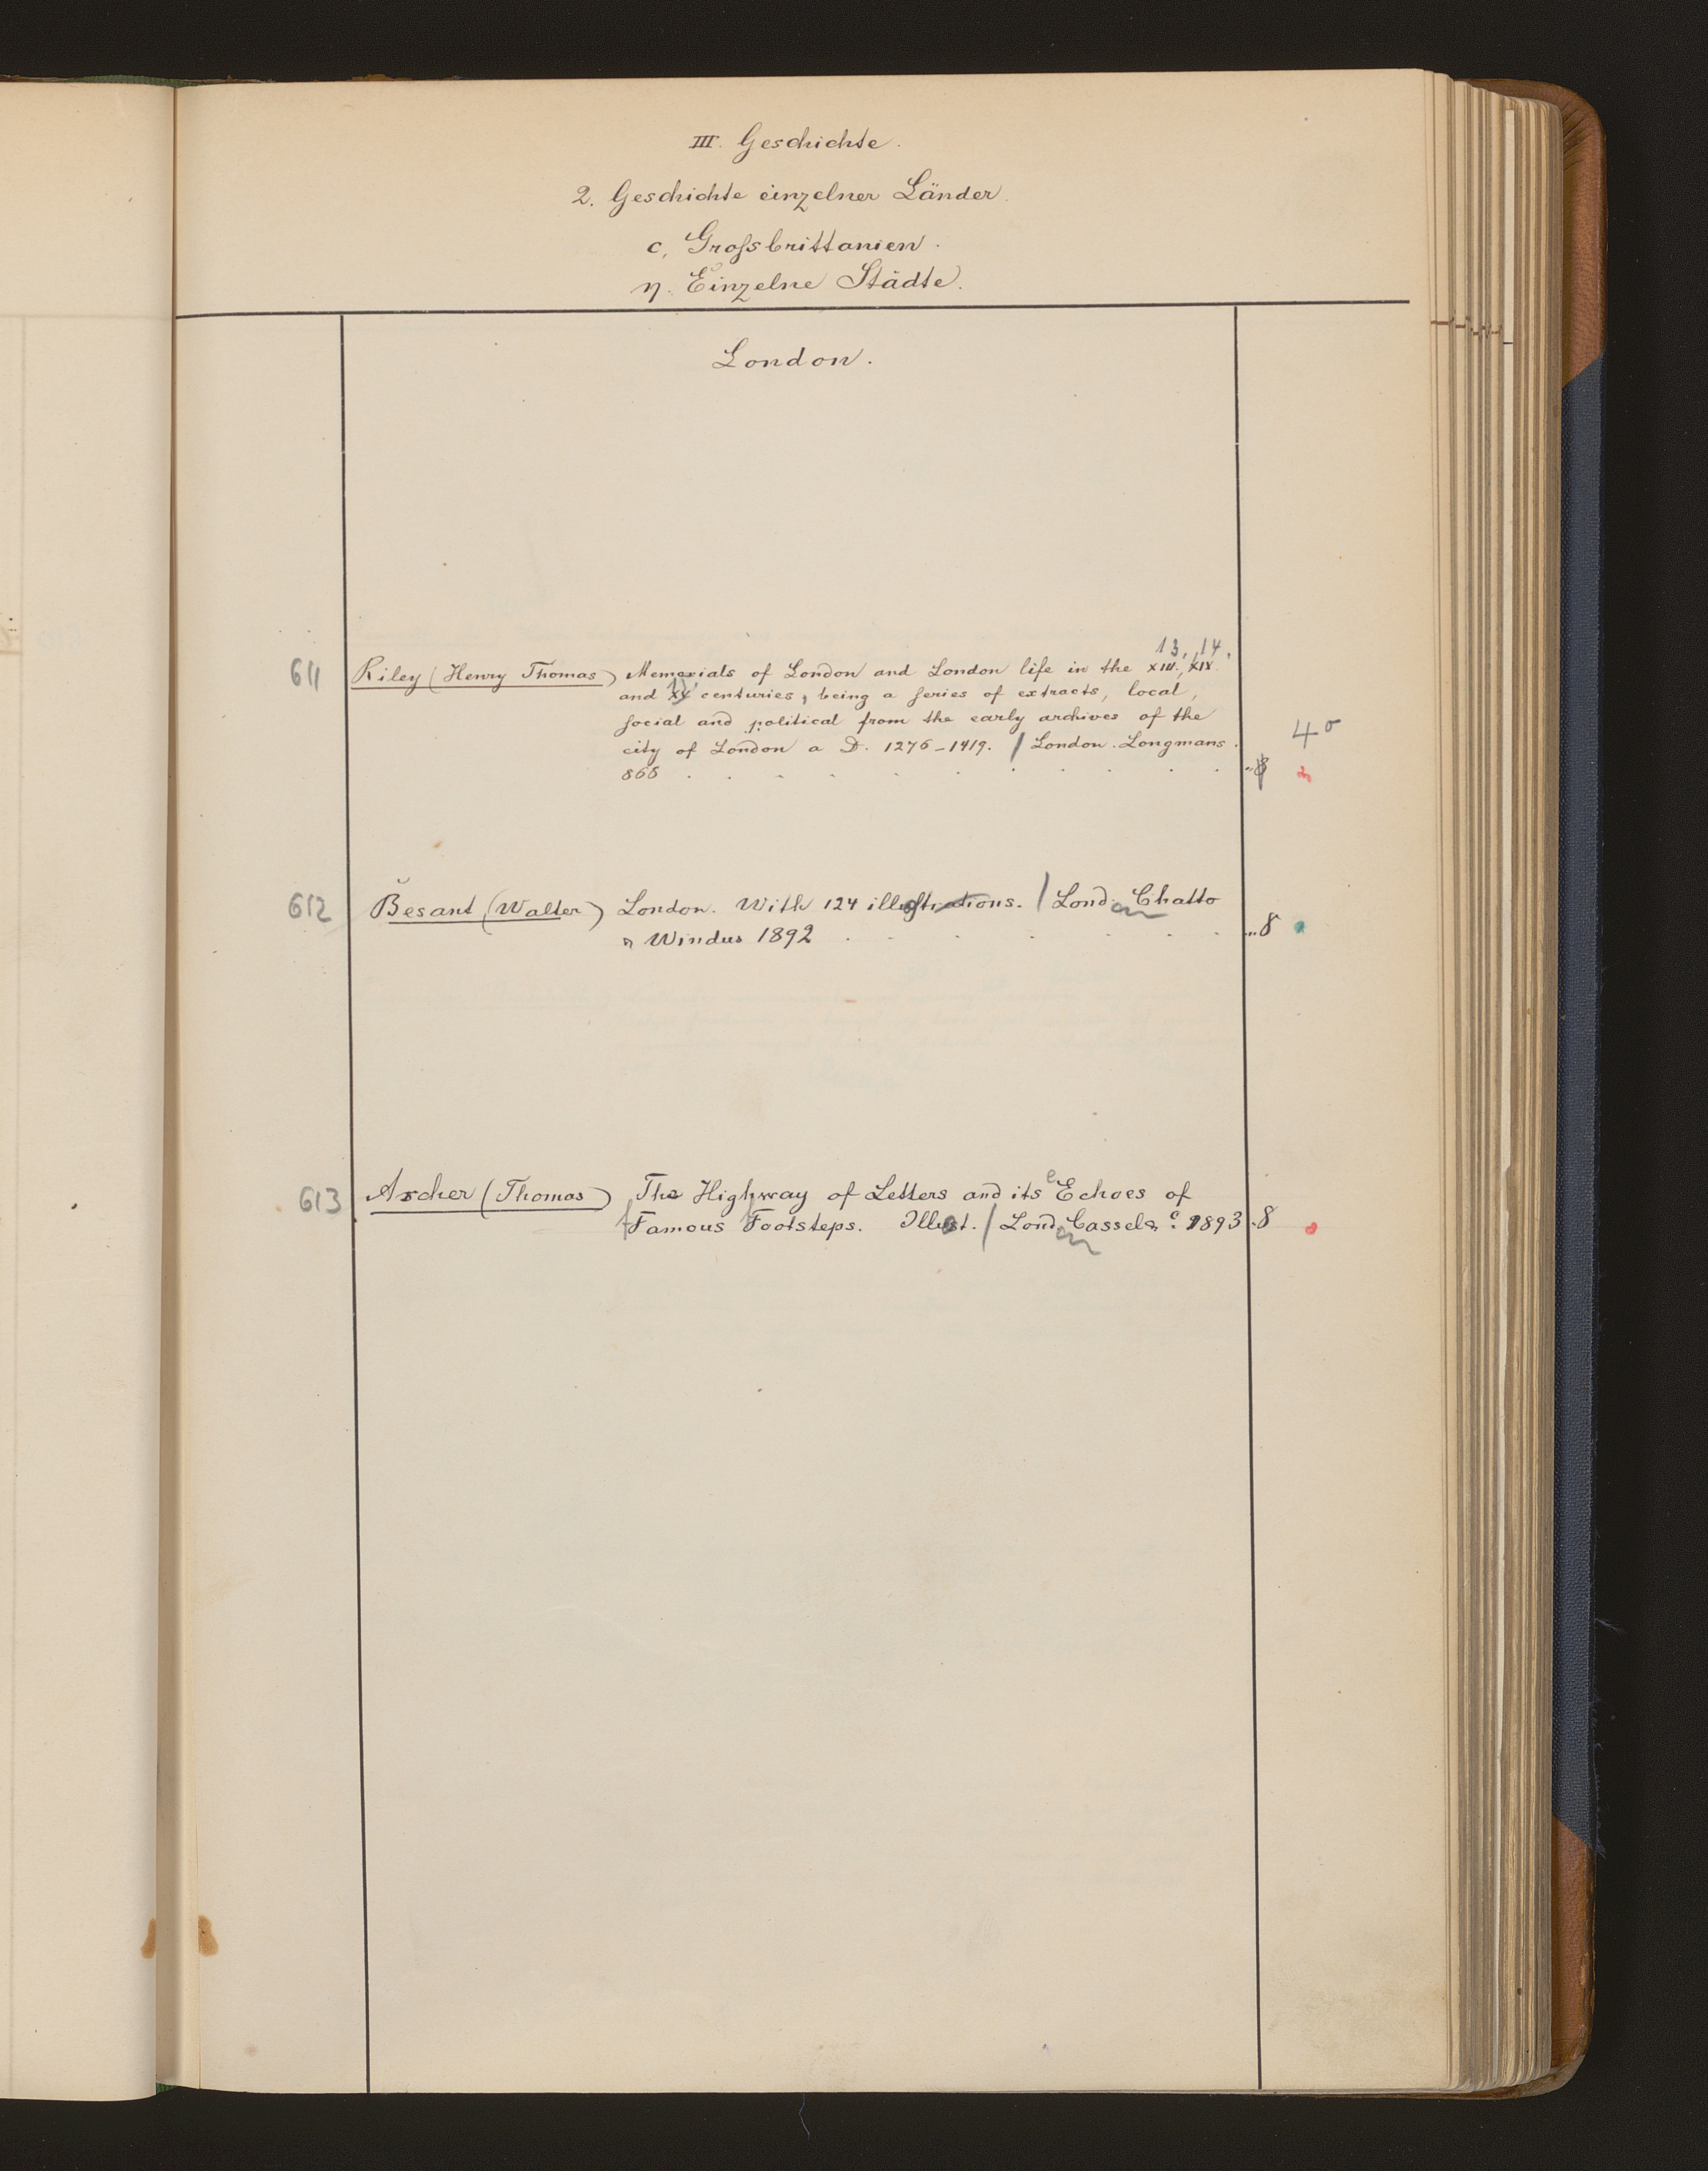 III. Geschichte.
2. Geschichte einzelner Länder.
c, Grossbrittanien.
η. Einzelne Städte.
London.
13., 14.,
611 Riley (Henry Thomas) Memorials of London and London life in the XIII., XIV.
and XV centuries, being a series of extracts, local,
social and political from the early archives of the
city of London a D. 1276–1419. / London. Longmans.
868 . . . . . . . . . . 8
4°
612 Besant (Walter) London. With 124 illustrations. / London Chatto
& Windus 1892 . . . . . . . 8
613 Archer (Thomas) The Highway of Letters and its Echoes of
Famous Footsteps. Illust. / London Cassel & C° 1893 . 8